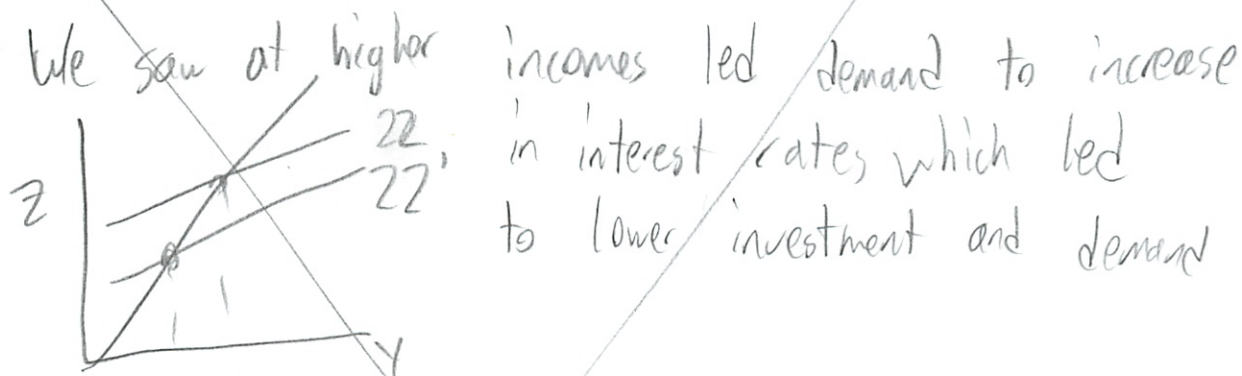 We saw at higher incomes led demand to increase
in interest rates which led
to lower investment and demand
ZZ
ZZ'
Z
Y